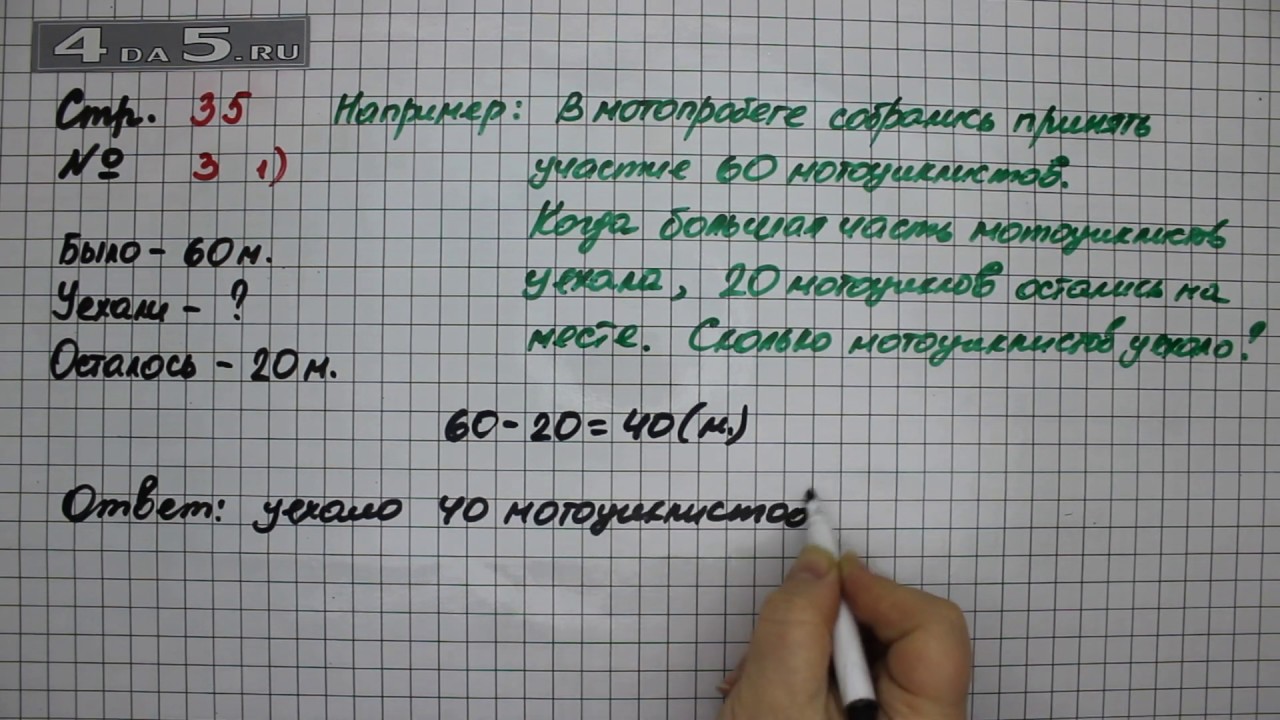 4DA5.RU
Стр. 35
№ 3 1)
Например: В мотопробеге собрались принять
участие 60 мотоциклистов.
Когда большая часть мотоциклистов
уехала, 20 мотоциклов остались на
месте. Сколько мотоциклистов уехало?
Было - 60 м.
Уехали - ?
Осталось - 20 м.
60 - 20 = 40 (м.)
Ответ: уехало 40 мотоциклистов